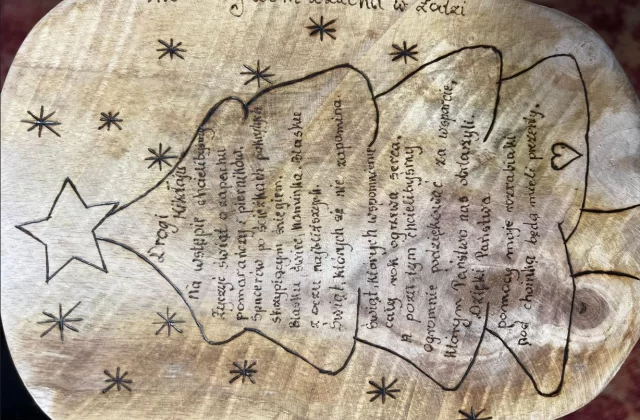 w Łodzi
Drogi
Mikołaju
Na wstępie chcielibyśmy
życzyć świąt o zapachu
pomarańczy, pierników,
Spacerów po ścieżkach pokrytych
skrzypiącym śniegiem.
Blasku świec kominka, blasku
z oczu najbliższych.
Świąt, których się nie zapomina.
Świąt, których wspomnienie
cały rok ogrzewa serca.
A poza tym chcielibyśmy
ogromnie podziękować za wsparcie,
którym Państwo nas obdarzyli.
Dzięki Państwa
pomocy moje rozrabiaki
pod choinką będą mieli prezenty.